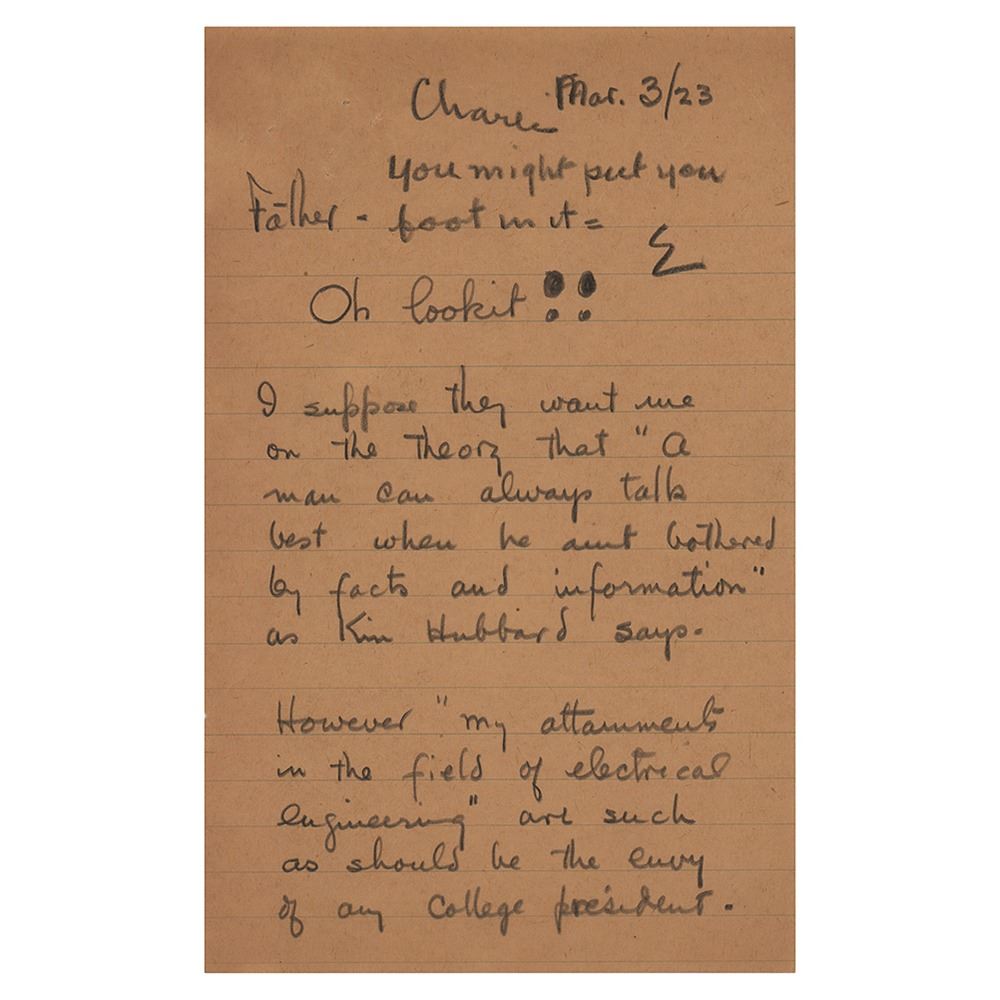 Mar. 3/23
Charles
You might put you
foot in it =
E
Father -
Oh lookit !!
I suppose they want me
on the theory that "A
man can always talk
best when he aint bothered
by facts and information"
as Kin Hubbard says.
However "my attainments
in the field of electrical
engineering" are such
as should be the envy
of any College president.